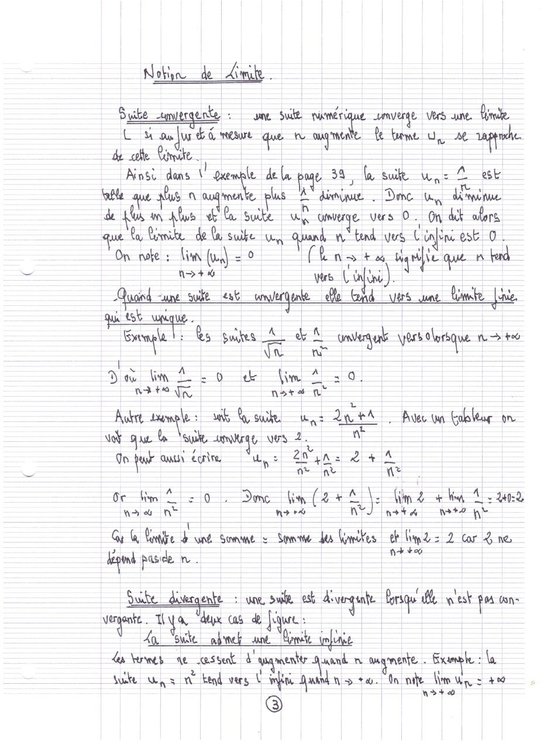 Notion de Limite.
Suite convergente : une suite numérique converge vers une limite
L si au fur et à mesure que n augmente le terme Un se rapproche
de cette limite.
Ainsi dans l'exemple de la page 39, la suite un = 1/n est
telle que plus n augmente plus 1/n diminue. Donc un diminue
de plus en plus et la suite un converge vers 0. On dit alors
que la limite de la suite un quand n tend vers l'infini est 0.
On note : lim (un) = 0 (le n → +∞ signifie que n tend
n→+∞ vers l'infini).
Quand une suite est convergente elle tend vers une limite finie
qui est unique.
Exemple : les suites 1/√n et 1/n² convergent vers 0 lorsque n → +∞
D'où lim 1/√n = 0 et lim 1/n² = 0.
n→+∞ n→+∞
Autre exemple : soit la suite un = (2n²+1)/n². Avec un tableur on
voit que la suite converge vers 2.
On peut aussi écrire un = 2n²/n² + 1/n² = 2 + 1/n²
Or lim 1/n² = 0. Donc lim (2 + 1/n²) = lim 2 + lim 1/n² = 2+0=2
n→+∞ n→+∞ n→+∞ n→+∞
Car la limite d'une somme = somme des limites et lim 2 = 2 car 2 ne
n→+∞
dépend pas de n.
Suite divergente : une suite est divergente lorsqu'elle n'est pas con-
vergente. Il y a deux cas de figure :
La suite admet une limite infinie
Les termes ne cessent d'augmenter quand n augmente. Exemple : la
suite un = n² tend vers l'infini quand n → +∞. On note lim un = +∞
n→+∞
3